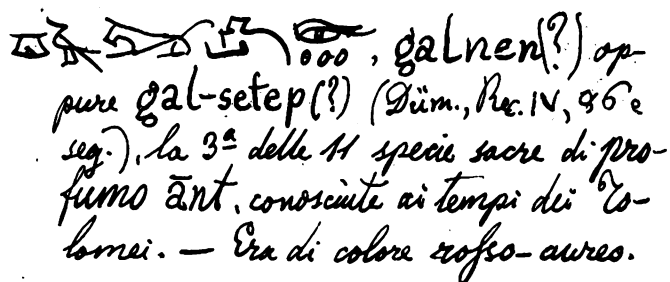 , galnen(?) op-
pure gal-setep(?) (Düm., Rec. IV, 96 e
seg.), la 3ª delle 11 specie sacre di pro-
fumo ānt, conosciute ai tempi dei To-
lomei. — Era di colore rosso-aureo.